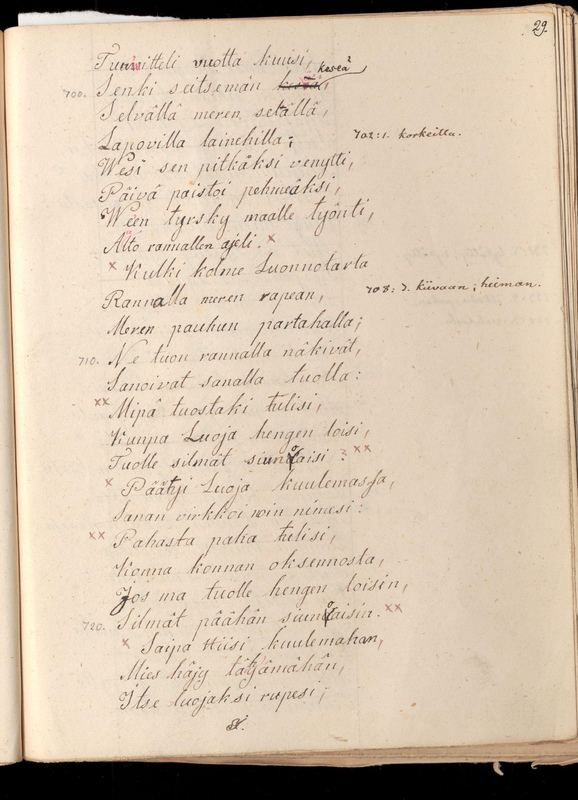 29.
Tuuwitteli vuotta kuusi,
700. Senki seitsemän kesää,
Selvällä meren selällä,
Lapovilla lainehilla; 702:1. korkeilla.
Wesi sen pitkäksi venytti,
Päivä paistoi pehmeäksi,
Ween tyrsky maalle työnti,
Alto rannallen ajeli. ×
× Kulki kolme Luonnotarta
Rannalla meren rapean, 708: 3. kiivaan; heiman.
Meren pauhun partahalla;
710. Ne tuon rannalla näkivät,
Sanoivat sanalla tuolla:
×× Mipä tuostaki tulisi,
Kunpa Luoja hengen loisi,
Tuolle silmät siunoaisi? ××
× Päätyi Luoja kuulemassa,
Sanan virkkoi noin nimesi:
×× Pahasta paha tulisi,
Konna konnan oksennosta,
Jos ma tuolle hengen loisin,
720. Silmät päähän siunoaisin. ××
× Saipa Hiisi kuulemahan,
Mies häjy tätjämähän,
Itse luojaksi rupesi;